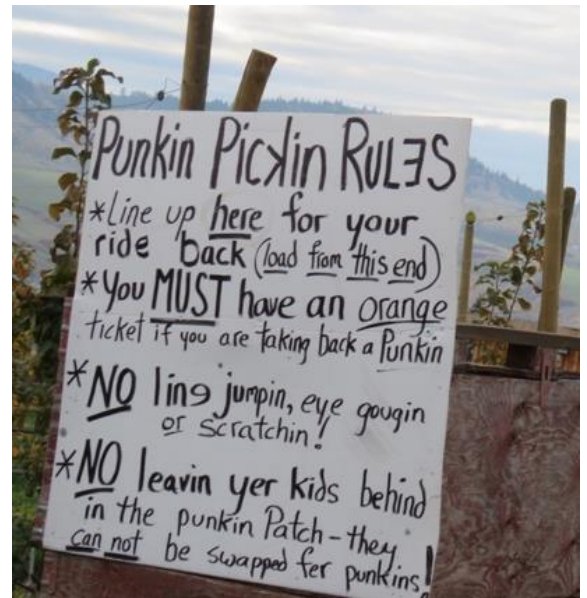 Punkin Pickin RULES
*Line up here for your
ride back (load from this end)
*You MUST have an orange
ticket if you are taking back a Punkin
*NO line jumpin, eye gougin
or scratchin!
*NO leavin yer kids behind
in the punkin Patch - they
can not be swapped fer punkins!